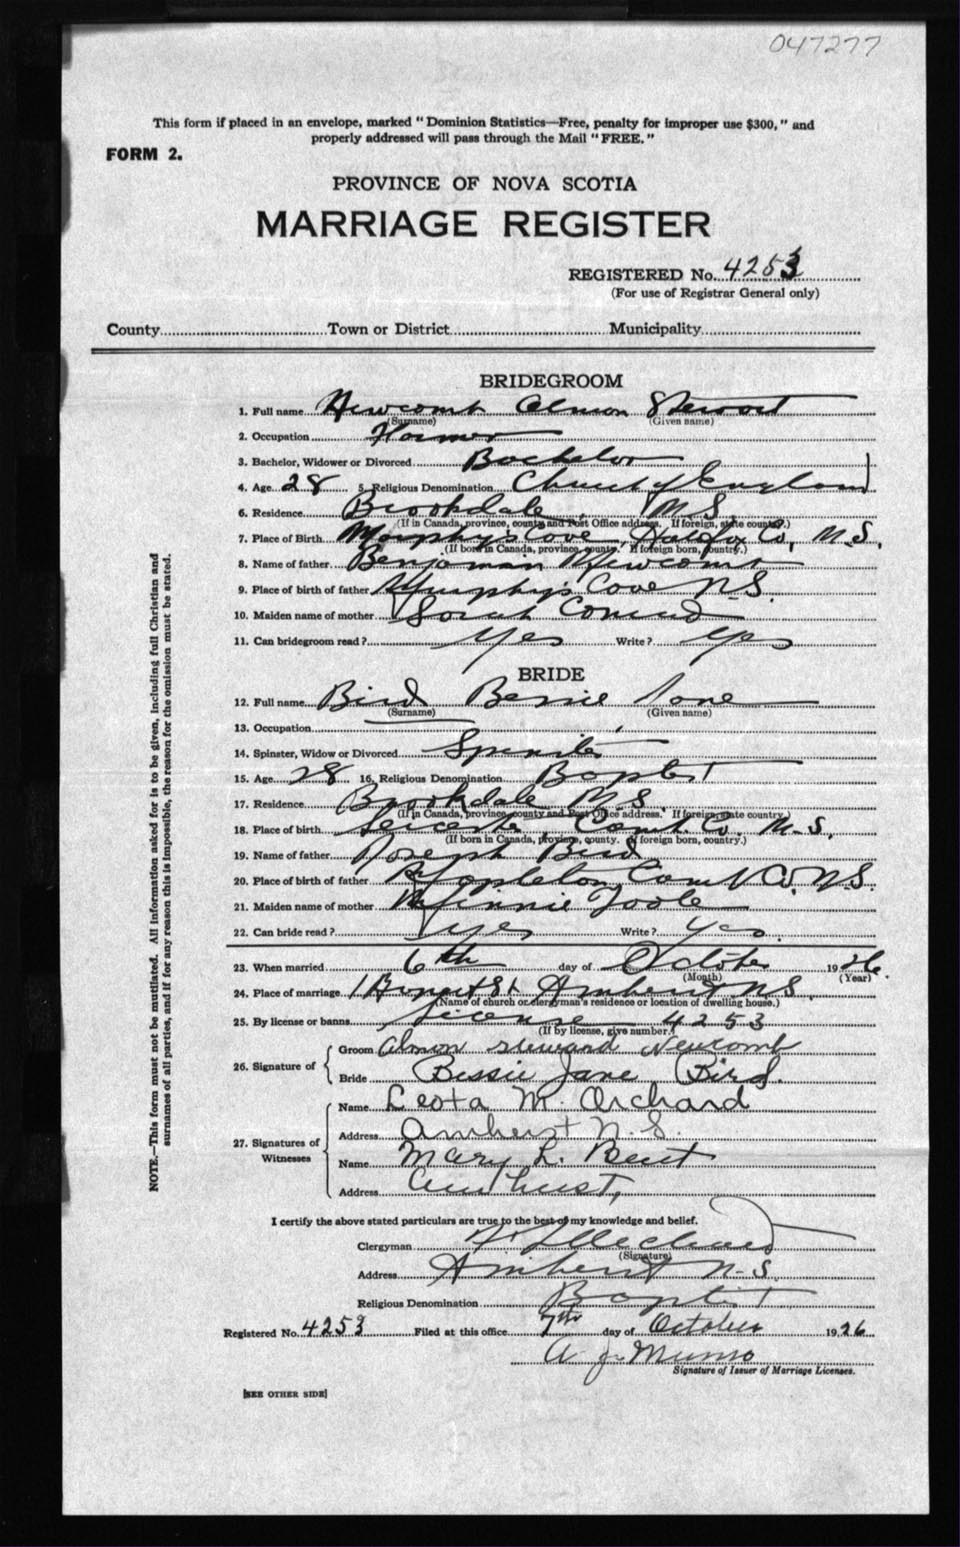 047277
This form if placed in an envelope, marked "Dominion Statistics—Free, penalty for improper use $300," and
properly addressed will pass through the Mail "FREE."
FORM 2.
PROVINCE OF NOVA SCOTIA
MARRIAGE REGISTER
REGISTERED No. 4253
(For use of Registrar General only)
County Town or District Municipality
BRIDEGROOM
1. Full name Newcomb Almon Stewart
(Surname) (Given name)
2. Occupation Farmer
3. Bachelor, Widower or Divorced Bachelor
4. Age 28 5. Religious Denomination Church of England
6. Residence Brookdale N.S.
(If in Canada, province, county and Post Office address. If foreign, state country.)
7. Place of Birth Murphy's Cove, Halifax Co, N.S.
(If born in Canada, province, county. If foreign born, country.)
8. Name of father Benjaman Newcomb
9. Place of birth of father Murphy's Cove N-S.
10. Maiden name of mother Sarah Conrad
11. Can bridegroom read? Yes Write? Yes
BRIDE
12. Full name Bird Bessie Jane
(Surname) (Given name)
13. Occupation
14. Spinster, Widow or Divorced Spinster
15. Age 28 16. Religious Denomination Baptist
17. Residence Brookdale N.S.
(If in Canada, province, county and Post Office address. If foreign, state country.)
18. Place of birth Leicester Cumb. Co. N-S.
(If born in Canada, province, county. If foreign born, country.)
19. Name of father Joseph Bird
20. Place of birth of father Mapleton Cumb Co. N.S.
21. Maiden name of mother Minnie Toole
22. Can bride read? Yes Write? Yes.
23. When married 6th day of October 1926.
(Month) (Year)
24. Place of marriage St Amherst N.S.
(Name of church or clergyman's residence or location of dwelling house.)
25. By license or banns License 4253
(If by license, give number.)
26. Signature of
Groom Almon Steward Newcomb
Bride Bessie Jane Bird.
27. Signatures of Witnesses
Name Leota M. Orchard
Address Amherst N.S.
Name Mary L. Bent
Address Amherst,
I certify the above stated particulars are true to the best of my knowledge and belief.
Clergyman
(Signature)
Address Amherst N-S.
Religious Denomination Baptist
Registered No. 4253 Filed at this office 7th day of October 1926
A. J. Munro
Signature of Issuer of Marriage Licenses.
[SEE OTHER SIDE]
NOTE.—This form must not be mutilated. All information asked for is to be given, including full Christian and
surnames of all parties, and if for any reason this is impossible, the reason for the omission must be stated.